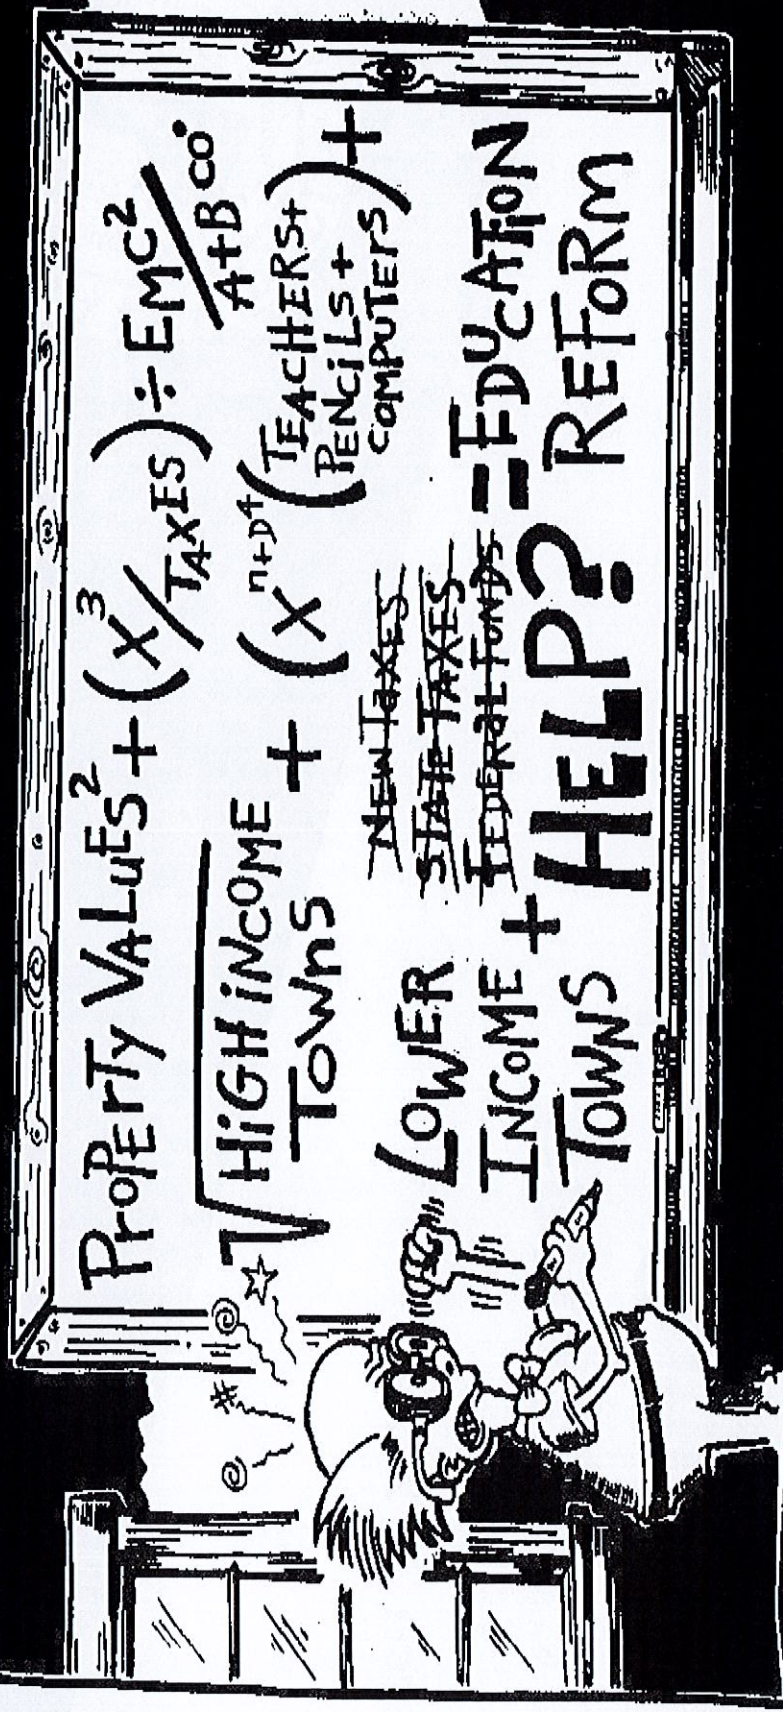 PROPERTY VALUES² + (X³/TAXES) ÷ EMC²/A+B CO°
√HIGH INCOME TOWNS + (X^n+D4 (TEACHERS+
PENCILS+
COMPUTERS) +
LOWER
INCOME +
TOWNS
NEW TAXES
STATE TAXES
FEDERAL FUNDS
HELP?
= EDUCATION
REFORM